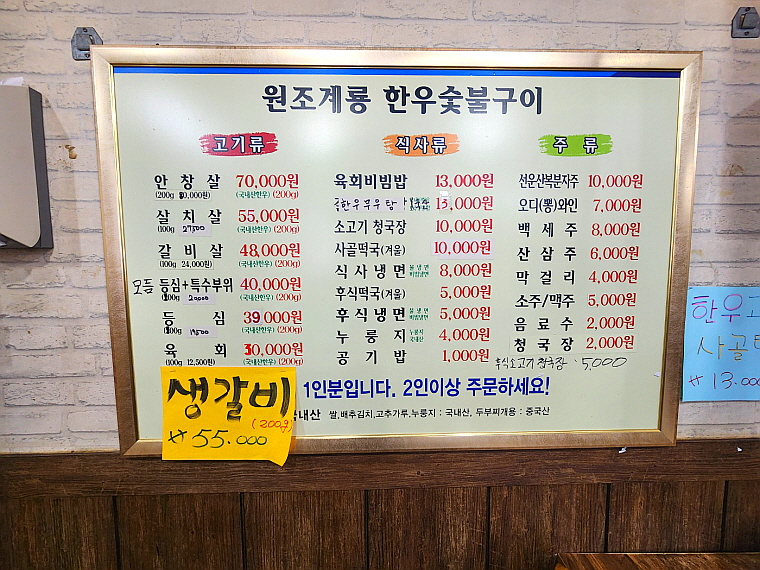 원조계룡 한우숯불구이
고기류
안창살 70,000원
(국내산한우) (200g)
살치살 55,000원
(100g 27500 (국내산한우) (200g)
갈비살 48,000원
(100g 24,000원) (국내산한우) (200g)
모듬 등심+특수부위 40,000원
(100g 20000 (국내산한우) (200g)
등심 39,000원
19500 (국내산한우) (200g)
육회 30,000원
(100g 12,500원) (국내산한우) (200g)
식사류
육회비빔밥 13,000원
13,000원
소고기 청국장 10,000원
사골떡국(겨울) 10,000원
식사냉면 물냉면 비빔냉면 8,000원
후식떡국(겨울) 5,000원
후식냉면 물냉면 비빔냉면 5,000원
누룽지 누룽지 국내산 4,000원
공기밥 1,000원
주류
선운산복분자주 10,000원
오디(뽕)와인 7,000원
백세주 8,000원
산삼주 6,000원
막걸리 4,000원
소주/맥주 5,000원
음료수 2,000원
청국장 2,000원
후식소고기 청국장 · 5,000
1인분입니다. 2인이상 주문하세요!
국내산 쌀,배추김치,고추가루,누룽지 : 국내산, 두부찌개용 : 중국산
생갈비
(200g)
₩ 55.000
한우
사골
₩ 13.000